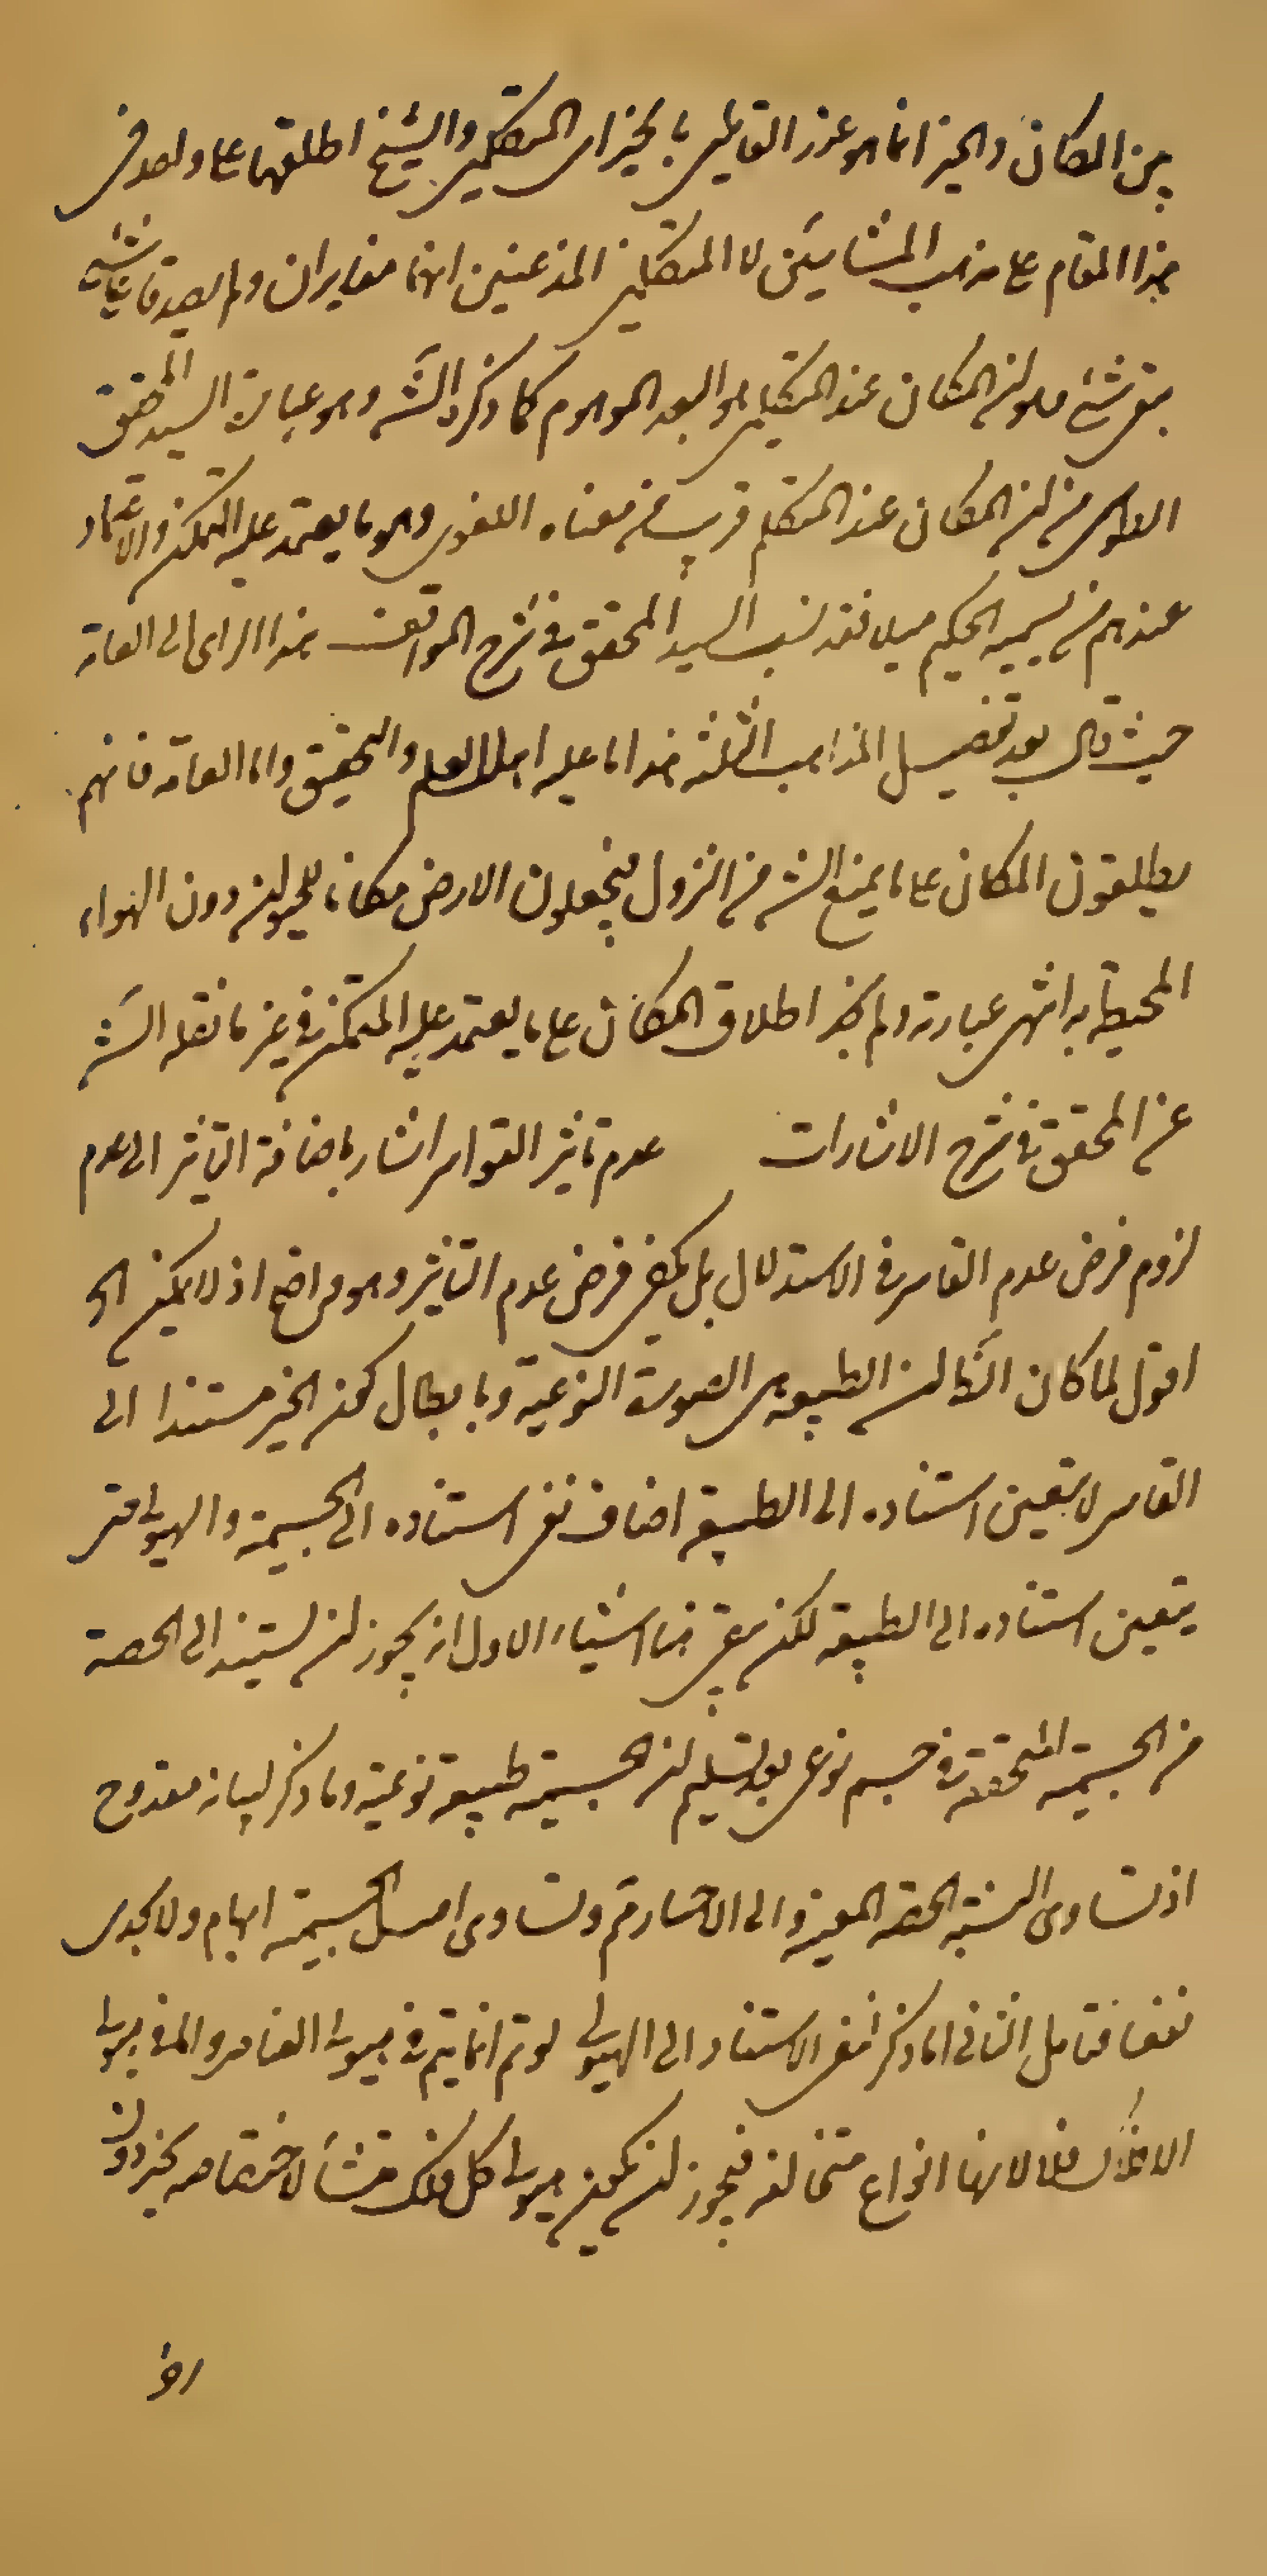 بين المكان والحيز انما هو عند القائلين بالحيز اى المتكلمين والشيخ اطلقهما على واحد فى
هذا المقام على مذهب المشائين لا المتكلمين المذعنين انهما متغايران ولم يصدقا على شئ
بقى شئ هو ان المكان عند المتكلمين هو البعد الموهوم كما ذكره الش وهو عبارة السيد المحقق
من ان المكان عند المتكلم قريب من معناه اللغوى وهو ما يعتمد عليه المتمكن والاعتماد
عندهم من يسميه الحكيم ميلا فقد نسب السيد المحقق فى شرح المواقف هذا الراى الى العامة
حيث قال بعد تفصيل المذاهب الثلثة هذا ما عليه اهل العلم والتحقيق واما العامة فانهم
يطلقون المكان على ما يمنع الشئ من النزول فيجعلون الارض مكانا للحيوان دون الهواء
المحيط به انتهى عبارته ولم نجد اطلاق المكان على ما يعتمد عليه المتمكن فى غير ما نقله الش
عن المحقق فى شرح الاشارات عدم تاثير القواسر اشار باضافة التاثير الى عدم
لزوم فرض عدم القاسر فى الاستدلال بل يكفى فرض عدم التاثير وهو واضح اذ لا يمكن الخ
اقول لما كان ان الطبيعة هى الصورة النوعية وبابطال كون الحيز مستندا الى
القاسر لا يتعين استناده الى الطبيعة اضاف نفى استناده الى الجسمية والهيولى حتى
يتعين استناده الى الطبيعة لكن بقى هنا اشياء الاول انه يجوز ان يستند الى الحصة
من الجسمية المتحققة فى جسم نوعى بعد تسليم ان الجسمية طبيعة نوعية وما ذكر لبيانه مقدوح
اذ تساوى النسبة الحصة المعينة الى الاحياز لم يتم وتساوى اصل الجسمية ابهام ولا يجدى
نفعا فتامل الثانى ان ما ذكر لنفى الاستناد الى الهيولى لو تم انما يتم فى هيولى العناصر واما فى هيولى
الافلاك فلا لانها انواع متخالفة فيجوز ان يكون هيولى كل فلك منشأ لاختصاصه بحيز دون